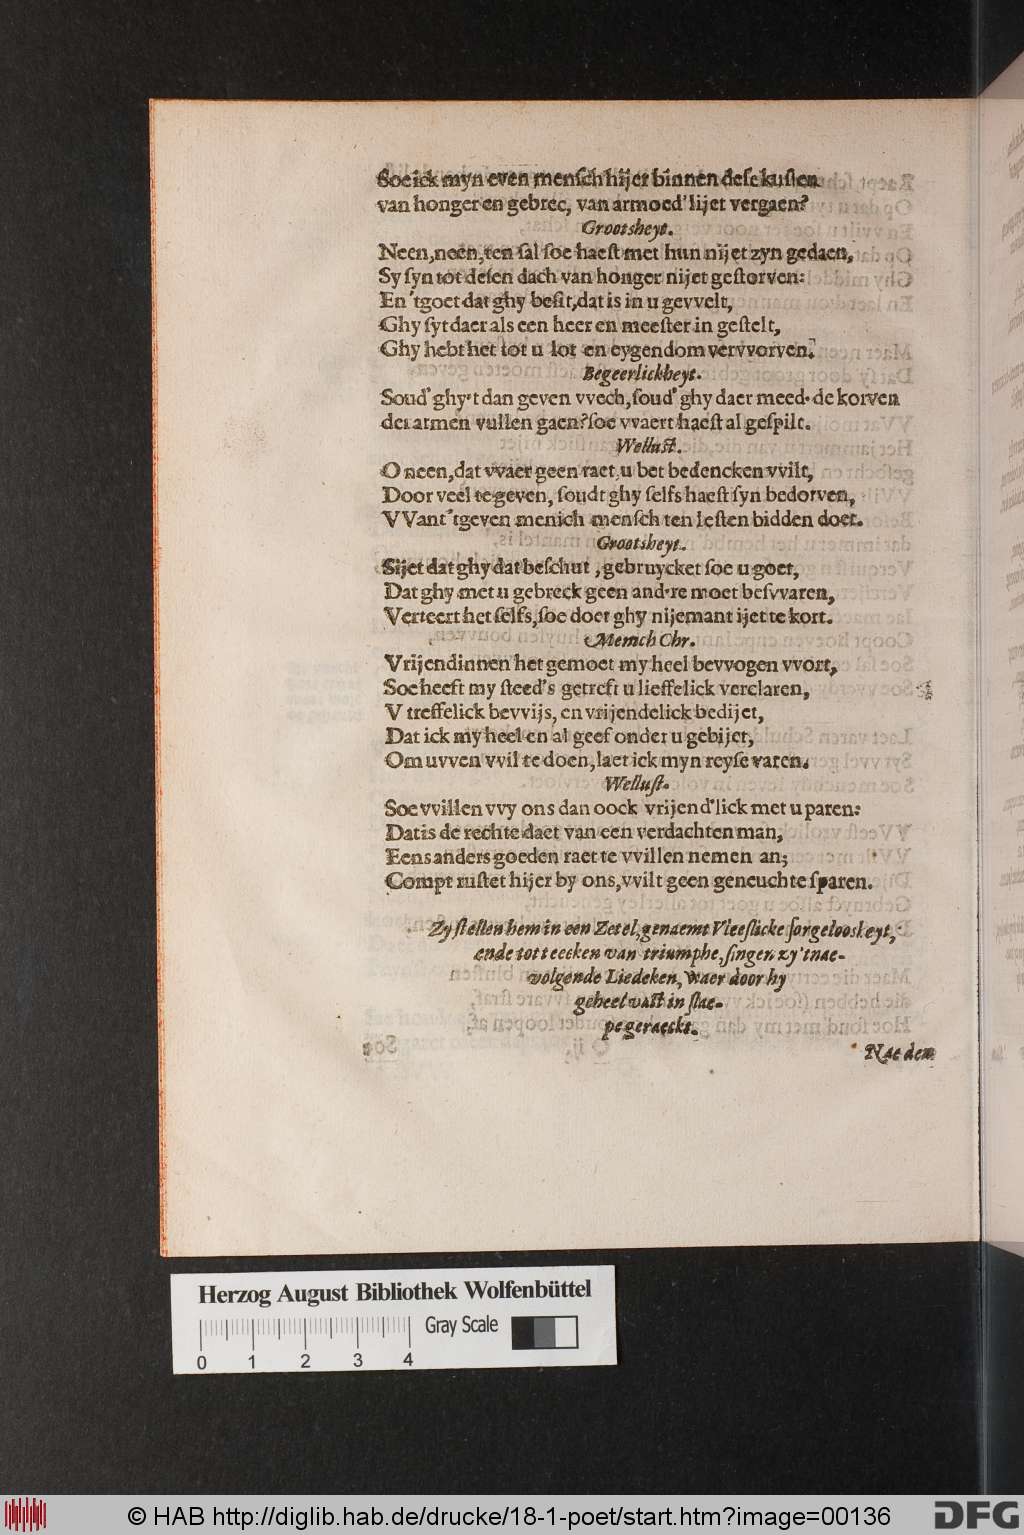 Soe ick myn even mensch hijer binnen dese kusten
van honger en gebrec, van armoed' lijet vergaen?
Grootsheyt.
Neen, neen, ten sal soe haest met hun nijet zyn gedaen,
Sy syn tot desen dach van honger nijet gestorven:
En 'tgoet dat ghy besit, dat is in u gevvelt,
Ghy syt daer als een heer en meester in gestelt,
Ghy hebt het tot u lot en eygendom vervvorven.
Begeerlickheyt.
Soud' ghy't dan geven vvech, soud' ghy daer meed' de korven
der armen vullen gaen? soe vvaert haest al gespilt.
Wellust.
O neen, dat vvaer geen raet, u bet bedencken vvilt,
Door veel te geven, soudt ghy selfs haest syn bedorven,
VVant 'tgeven menich mensch ten lesten bidden doet.
Grootsheyt.
Sijet dat ghy dat beschut, gebruycket soe u goet,
Dat ghy met u gebreck geen and're moet besvvaren,
Verteert het selfs, soe doet ghy nijemant ijet te kort.
Mensch Chr.
Vrijendinnen het gemoet my heel bevvogen vvort,
Soe heeft my steed's getreft u lieffelick verclaren,
V treffelick bevvijs, en vrijendelick bedijet,
Dat ick my heel en al geef onder u gebijet,
Om uvven vvil te doen, laet ick myn reyse varen.
Wellust.
Soe vvillen vvy ons dan oock vrijend'lick met u paren:
Dat is de rechte daet van een verdachten man,
Eens anders goeden raet te vvillen nemen an;
Compt rustet hijer by ons, vvilt geen geneuchte sparen.
Zy stellen hem in een Zetel, genaemt Vleeslicke sorgelooskeyt,
ende tot teecken van triumphe, singen zy 'tnae-
volgende Liedeken, waer door hy
geheel vast in slae-
pe geraeckt.
Nae dem
Herzog August Bibliothek Wolfenbüttel
Gray Scale
0 1 2 3 4
© HAB http://diglib.hab.de/drucke/18-1-poet/start.htm?image=00136
DFG